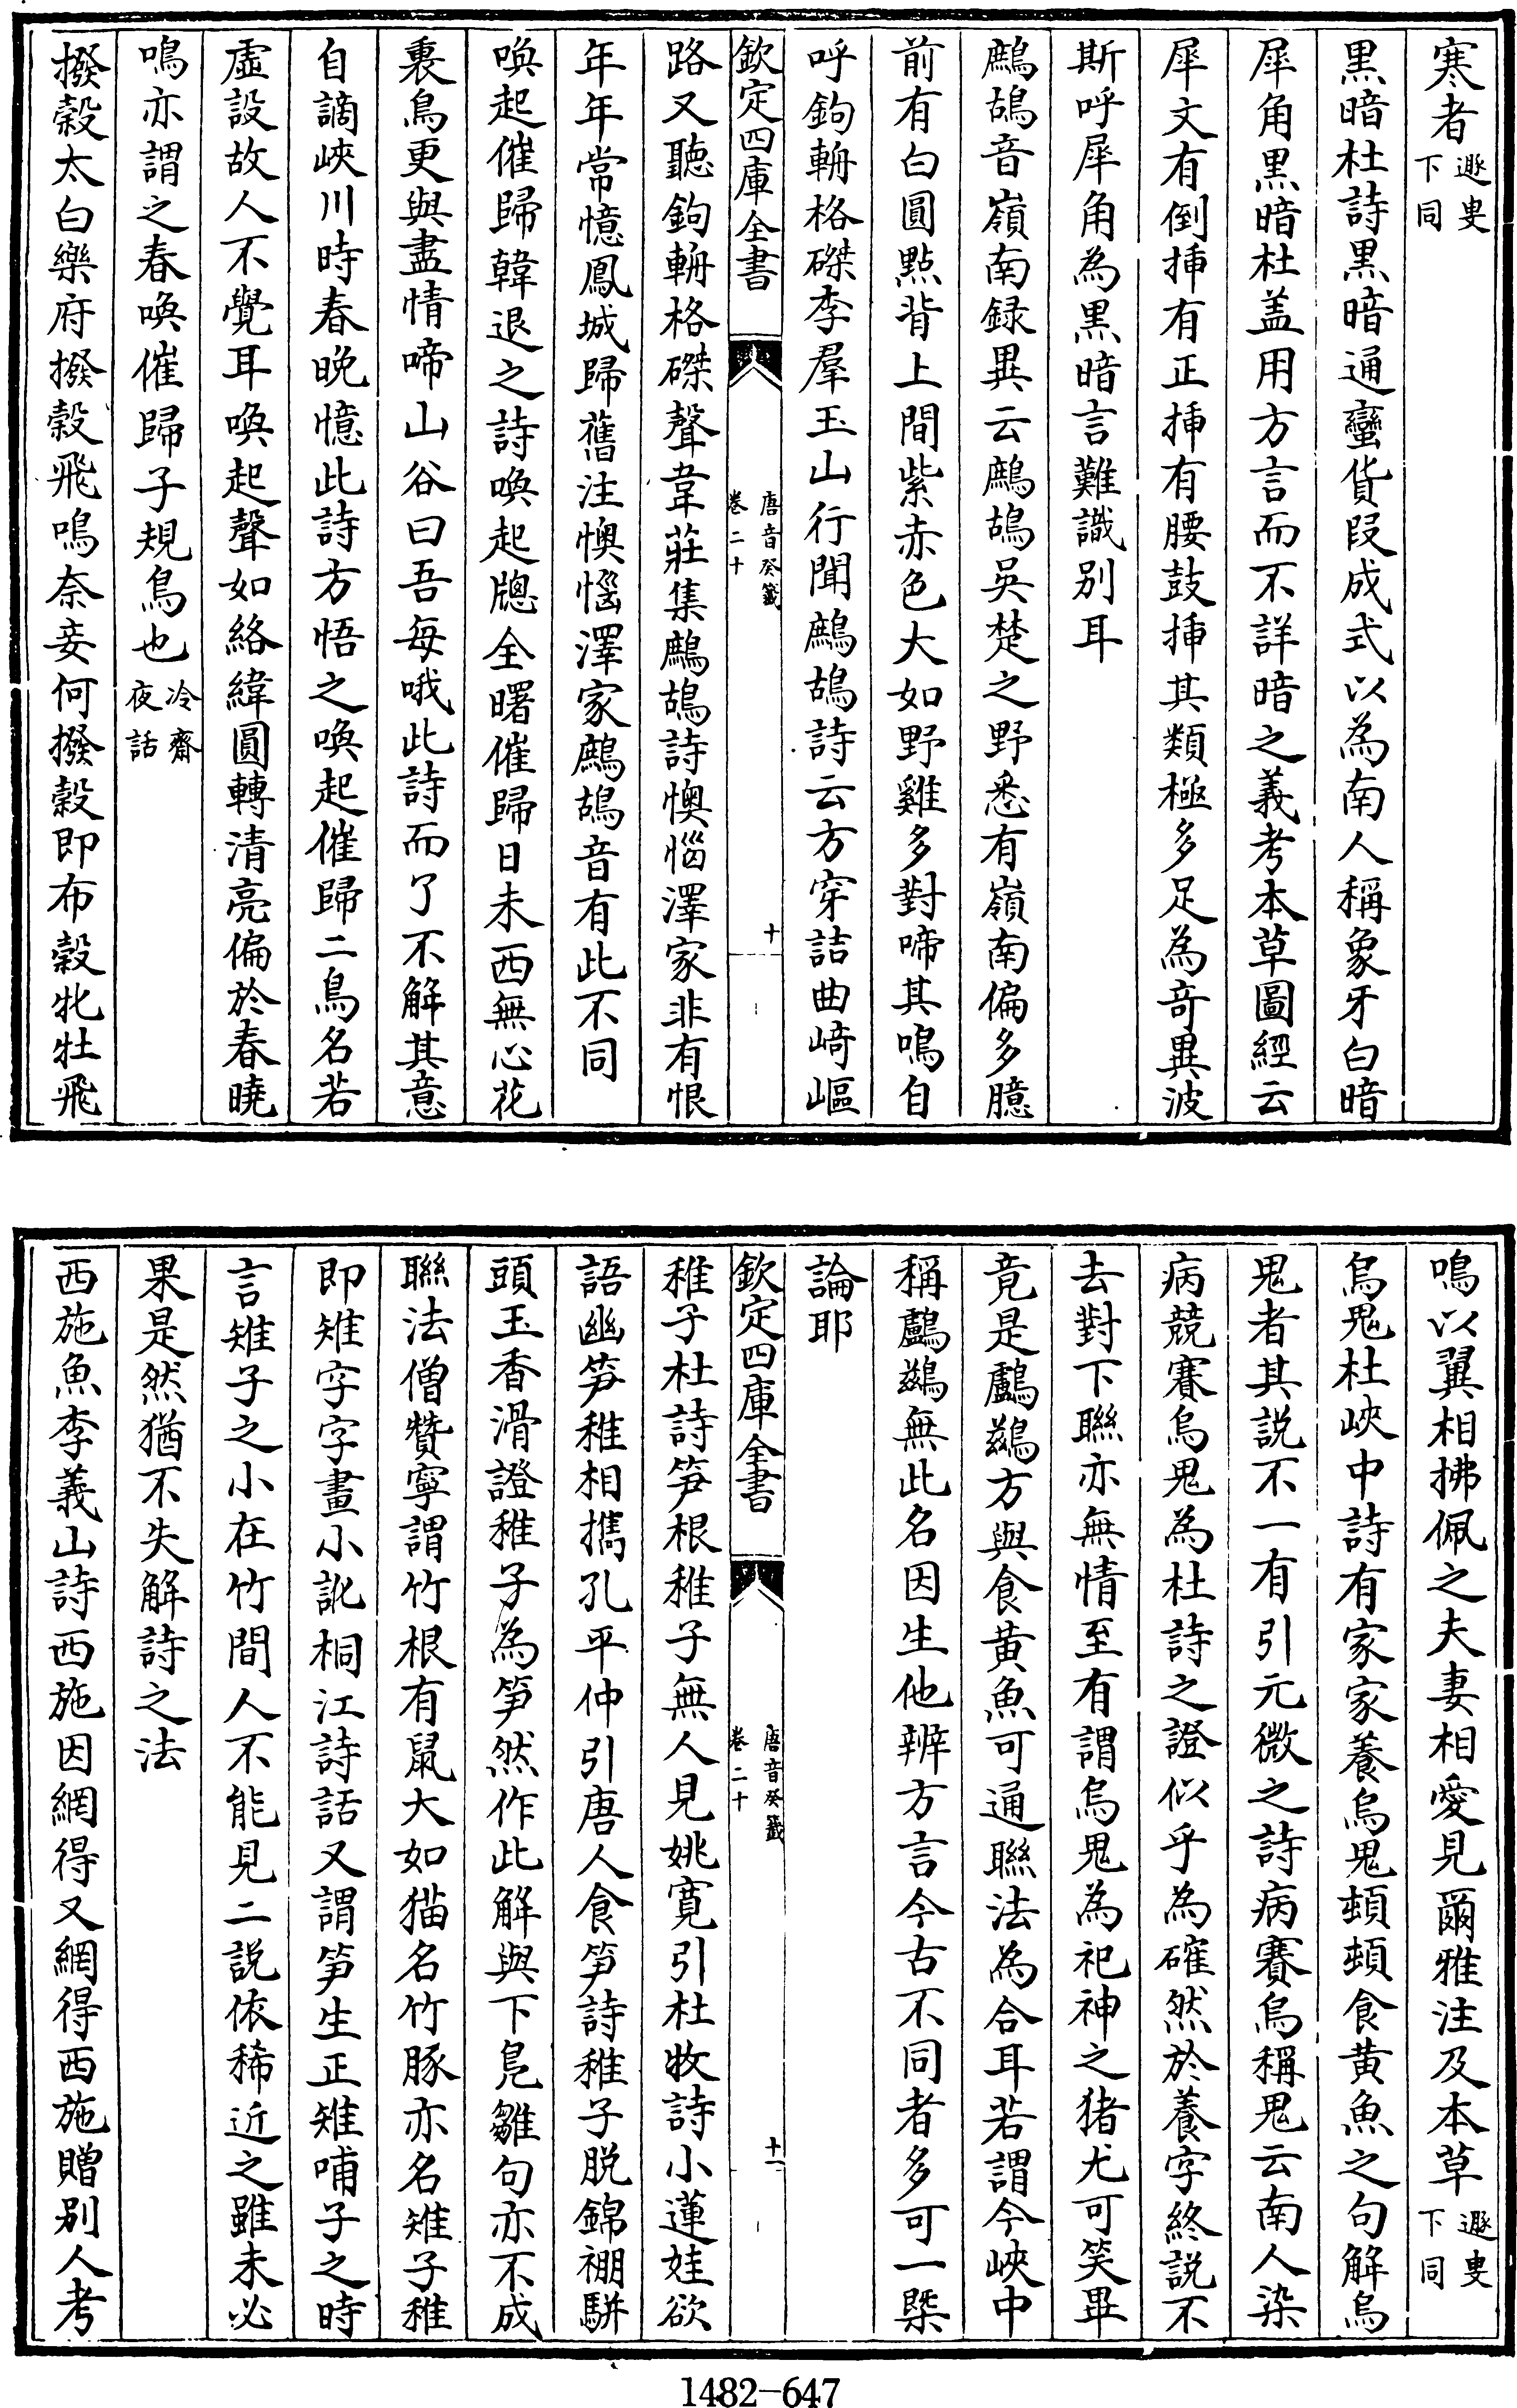 寒者遯叟下同
黑暗杜詩黒暗通蠻貨叚成式以為南人稱象牙白暗
犀角黒暗杜盖用方言而不詳暗之義考本草圖經云
犀文有倒揷有正揷有腰鼓揷其類極多足為奇異波
斯呼犀角為黒暗言難識别耳
鷓鴣音嶺南録異云鷓鴣吳楚之野悉有嶺南偏多臆
前有白圓㸃背上間紫赤色大如野雞多對啼其鳴自
呼鉤輈格磔李羣玉山行聞鷓鴣詩云方穿詰曲﨑嶇
欽定四庫全書 唐音癸籖卷二十 十
路又聽鉤輈格磔聲韋莊集鷓鴣詩懊惱澤家非有恨
年年常憶鳳城歸舊注懊惱澤家鷓鴣音有此不同
喚起催歸韓退之詩喚起牕全曙催歸日未西無心花
裏鳥更與盡情啼山谷曰吾每哦此詩而了不解其意
自謫峽川時春晚憶此詩方悟之喚起催歸二鳥名若
虚設故人不覺耳喚起聲如絡緯圓轉清亮偏於春曉
鳴亦謂之春喚催歸子規鳥也冷齋夜話
撥榖太白樂府撥榖飛鳴奈妾何撥榖即布榖牝牡飛
鳴以翼相拂佩之夫妻相愛見爾雅注及本草遯叟下同
烏鬼杜峽中詩有家家養烏鬼頓頓食黄魚之句解烏
鬼者其説不一有引元微之詩病賽烏稱鬼云南人染
病競賽烏鬼為杜詩之證似乎為確然於養字終説不
去對下聯亦無情至有謂烏鬼為祀神之猪尤可笑畢
竟是鸕鷀方與食黄魚可通聯法為合耳若謂今峽中
稱鸕鷀無此名因生他辨方言今古不同者多可一槩
論耶
欽定四庫全書 唐音癸籖卷二十 十一
稚子杜詩笋根稚子無人見姚寛引杜牧詩小蓮娃欲
語幽笋稚相攜孔平仲引唐人食笋詩稚子脱錦棚駢
頭玉香滑證稚子為笋然作此解與下鳬雛句亦不成
聯法僧贊寧謂竹根有鼠大如猫名竹豚亦名雉子稚
即雉字字畫小訛桐江詩話又謂笋生正雉哺子之時
言雉子之小在竹間人不能見二説依稀近之雖未必
果是然猶不失解詩之法
西施魚李義山詩西施因網得又網得西施贈别人考
1482-647